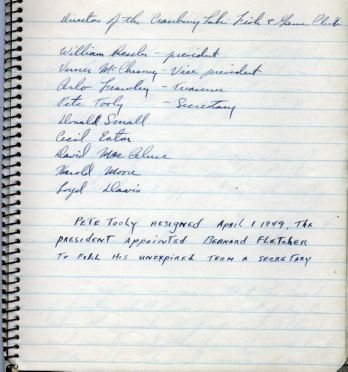 Director of the Cranberry Lake Fish & Game Club
William - president
Verner McChesney Vice president
Arlo - Treasurer
Pete Tooly - Secretary
Donald Small
Cecil Eaton
David
Harold Moore
Loyd Davis
PETE TOOLY RESIGNED APRIL 1 1979, THE
PRESIDENT APPOINTED BERNARD FLETCHER
TO FILL HIS UNEXPIRED TERM A SECRETARY